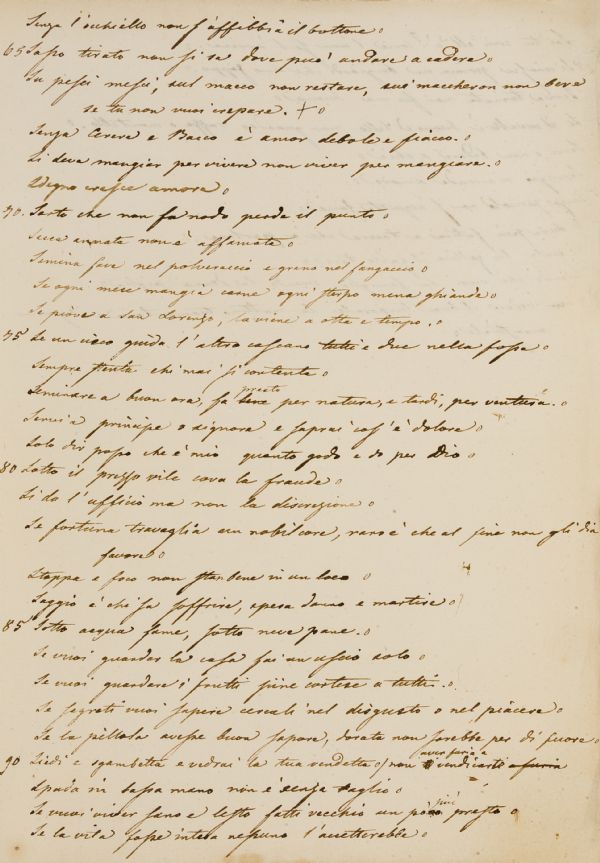 Senza l'occhiello non s'affibbia il bottone
65 Sasso tirato non si sa dove può andare a cadere
Su pesci mesci, sul macco non restare, sui maccheron non bere
se tu non vuoi crepare. +
Senza Cerere e Bacco è amor debole e fiacco.
Si deve mangiar per vivere non viver per mangiare.
Sdegno cresce amore
70. Sarto che non fa nodo perde il punto
Secca annata non è affamata
Semina fave nel polveraccio e grano nel fangaccio
Se ogni mese mangia carne ogni sterpo mena ghiande
Se piove a San Lorenzo, la viene a otta e tempo.
75 Se un cieco guida l'altro cascano tutti e due nella fossa
Sempre stenta chi mai si contenta
presto
Seminare a buon ora, fa bene per natura, e tardi, per ventura.
Servi a principe o signore e saprai cos'è dolore
Solo dir posso che è mio quanto godo e do per Dio
80 Sotto il prezzo vile cova la fraude
Si dà l'ufficio ma non la discrezione
Se fortuna travaglia un nobil core, raro è che al fine non gli dia
favore
Stoppa e foco non stan bene in un loco
Saggio è chi sa soffrire, spesa danno e martire
85 Sotto acqua fame, sotto neve pane.
Se vuoi guardar la casa fai un uscio solo
Se vuoi guardare i frutti sii cortese a tutti.
Se segreti vuoi sapere cercali nel disgusto o nel piacere
Se la pillola avesse buon sapore, dorata non sarebbe per di fuore
aver furia a
90 Siedi e sgambetta e vedrai la tua vendetta o/ non vendicarti a furia
Spada in bassa mano non è senza taglio
più
Se vuoi viver sano e lesto fatti vecchio un poco presto
Se la vita fosse intesa nessuno l'accetterebbe